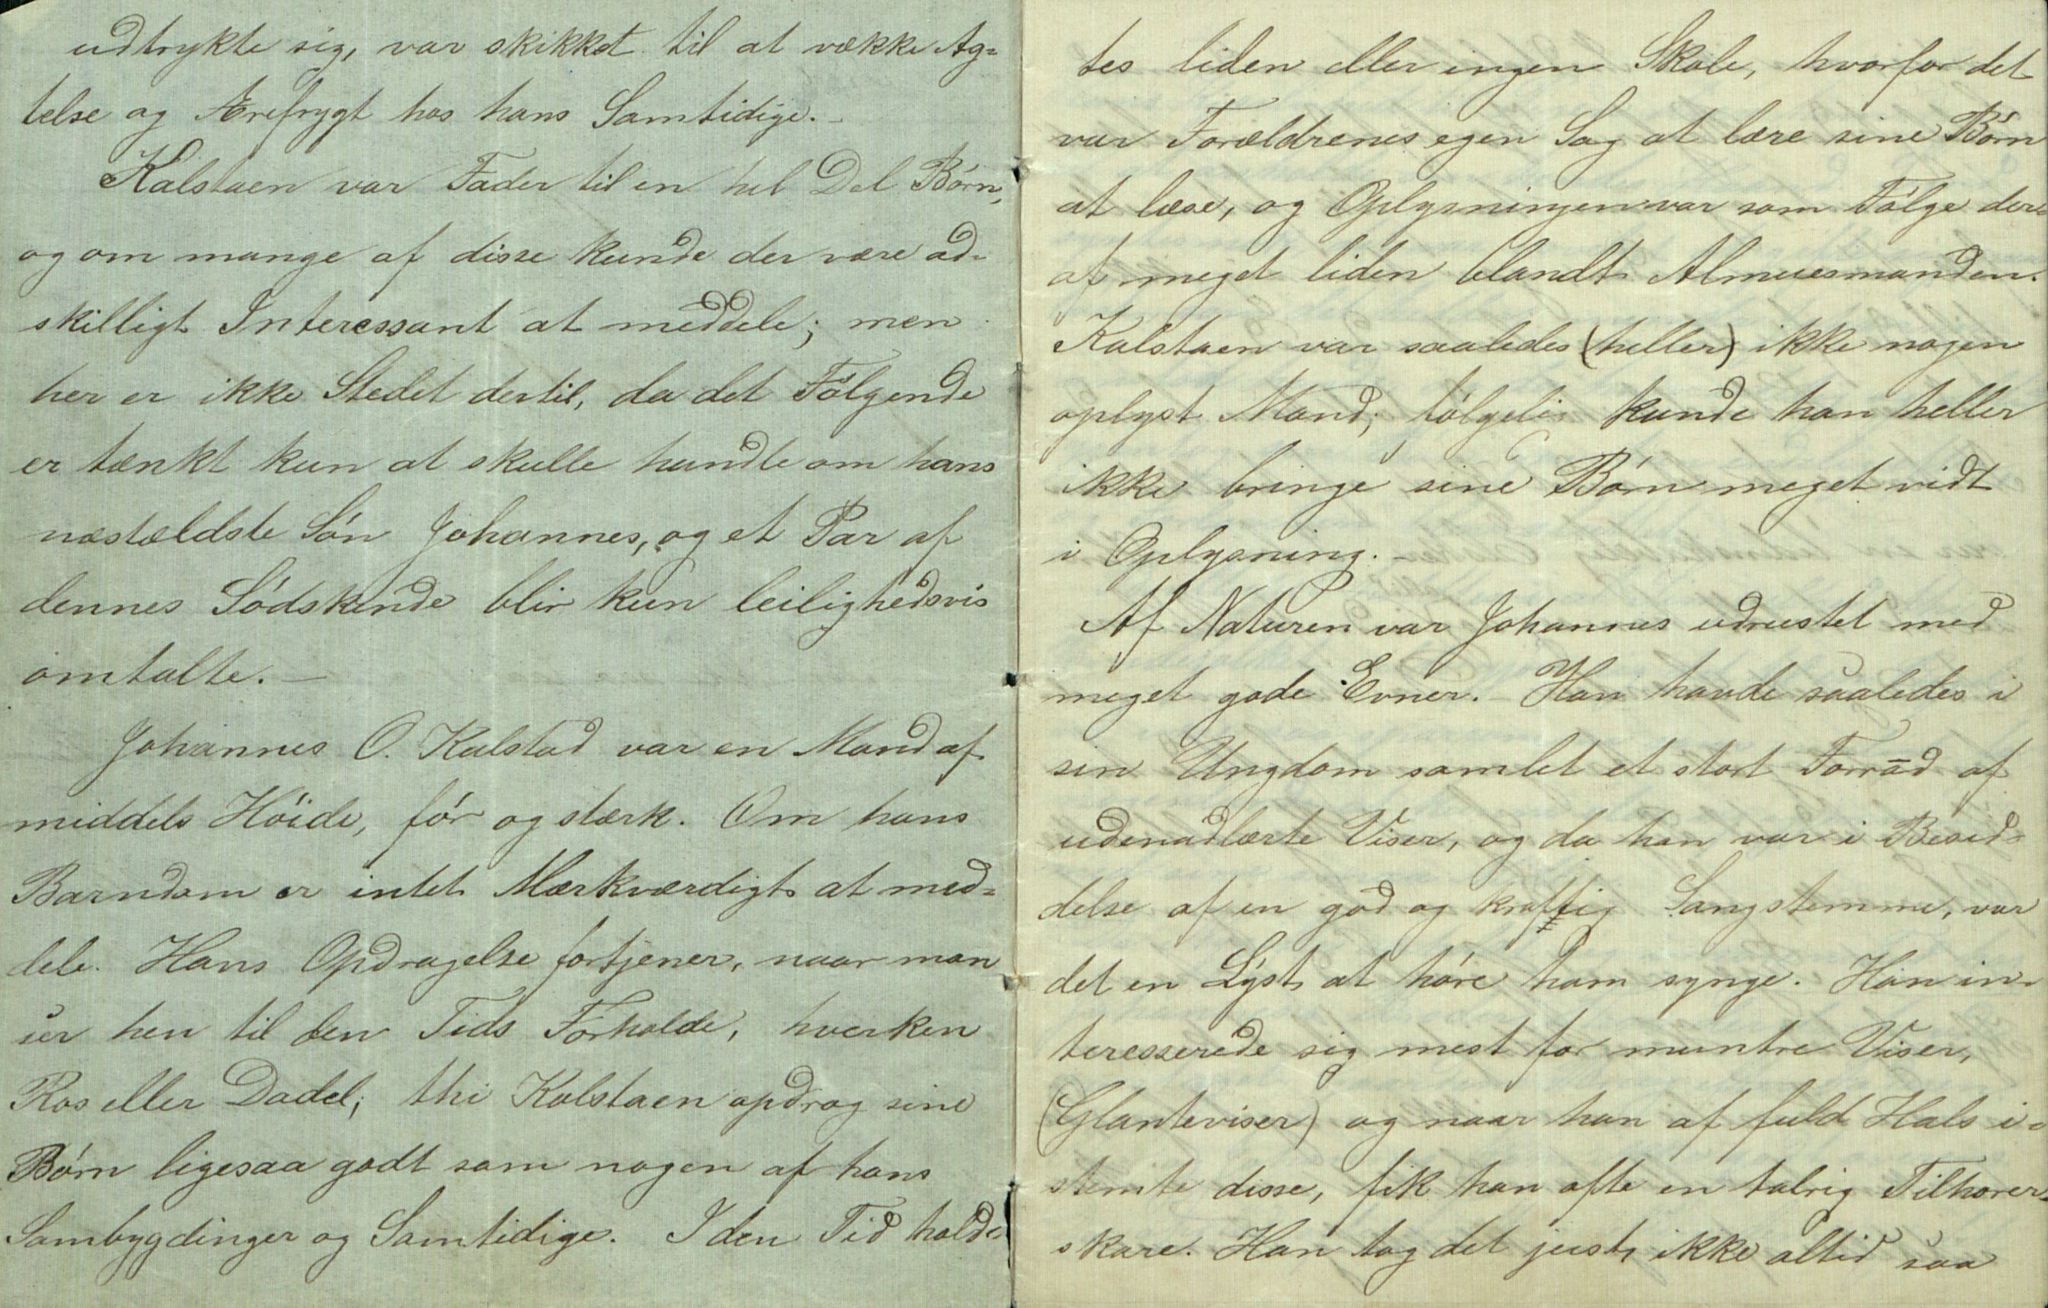 udtrykte sig, var skikket til at vække Ag-
telse og Ærefrygt hos hans Samtidige. -
Kalstaen var Fader til en hel Del Børn,
og om mange af disse kunde der være ad-
skilligt Interessant at meddele; men
her er ikke Stedet dertil, da det Følgende
er tænkt kun at skulle handle om hans
næstældste Søn Johannes, og et Par af
dennes Södskende blir kun leilighedsvis
omtalte. -
Johannes O. Kalstad var en Mand af
middels Höide, før og stærk. Om hans
Barndom er intet Mærkværdigt at med-
dele. Hans Opdragelse fortjener, naar man
ser hen til den Tids Forholde, hverken
Ros eller Dadel; thi Kalstaen opdrog sine
Børn ligesaa godt som nogen af hans
Sambygdinger og Samtidige. I den Tid hold-
tes liden eller ingen Skole, hvorfor det
var Forældrenes egen Sag at lære sine Børn
at læse, og Oplysningen var som Følge der-
af meget liden blandt Almuesmanden.
Kalstaen var saaledes (heller) ikke nogen
oplyst Mand; følgelig kunde han heller
ikke bringe sine Børn meget vidt
i Oplysning. -
Af Naturen var Johannes udrustet med
meget gode Evner. - Han havde saaledes i
sin Ungdom samlet et stort Forråd af
udenadlærte Viser, og da han var i Besid-
delse af en god og kraftig Sangstemme, var
det en Lyst at høre ham synge. Han in-
teresserede sig mest for muntre Viser,
(Glanteviser) og naar han af fuld Hals i-
stemte disse, fik han ofte en talrig Tilhører-
skare. Han tog det just ikke altid saa